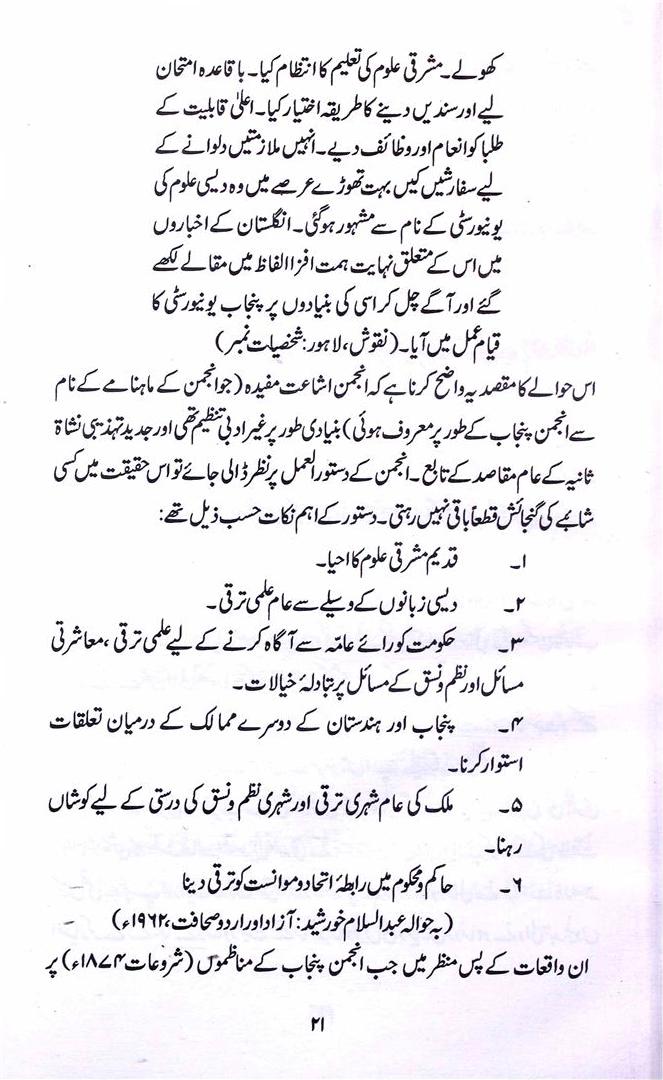 کھولے۔ مشرقی علوم کی تعلیم کا انتظام کیا۔ باقاعدہ امتحان
لیے اور سندیں دینے کا طریقہ اختیار کیا۔ اعلیٰ قابلیت کے
طلبا کو انعام اور وظائف دیے۔ انہیں ملازمتیں دلوانے کے
لیے سفارشیں کیں بہت تھوڑے عرصے میں وہ دیسی علوم کی
یونیورسٹی کے نام سے مشہور ہوگئی۔ انگلستان کے اخباروں
میں اس کے متعلق نہایت ہمت افزا الفاظ میں مقالے لکھے
گئے اور آگے چل کر اسی کی بنیادوں پر پنجاب یونیورسٹی کا
قیام عمل میں آیا۔ (نقوش، لاہور: شخصیات نمبر)
اس حوالے کا مقصد یہ واضح کرنا ہے کہ انجمن اشاعت مفیدہ (جو انجمن کے ماہنامے کے نام
سے انجمن پنجاب کے طور پر معروف ہوئی) بنیادی طور پر غیر ادبی تنظیم تھی اور جدید تہذیبی نشاۃ
ثانیہ کے عام مقاصد کے تابع۔ انجمن کے دستورالعمل پر نظر ڈالی جائے تو اس حقیقت میں کسی
شائبے کی گنجائش قطعاً باقی نہیں رہتی۔ دستور کے اہم نکات حسب ذیل تھے:
۱۔ قدیم مشرقی علوم کا احیا۔
۲۔ دیسی زبانوں کے وسیلے سے عام علمی ترقی۔
۳۔ حکومت کو رائے عامّہ سے آگاہ کرنے کے لیے علمی ترقی، معاشرتی
مسائل اور نظم و نسق کے مسائل پر تبادلۂ خیالات۔
۴۔ پنجاب اور ہندستان کے دوسرے ممالک کے درمیان تعلقات
استوار کرنا۔
۵۔ ملک کی عام شہری ترقی اور شہری نظم و نسق کی درستی کے لیے کوشاں
رہنا۔
۶۔ حاکم و محکوم میں رابطۂ اتحاد و موانست کو ترقی دینا
(بہ حوالہ عبدالسلام خورشید: آزاد اور اردو صحافت، ۱۹۶۲ء)
ان واقعات کے پس منظر میں جب انجمن پنجاب کے مناظموں (شروعات ۱۸۷۴ء) پر
۲۱